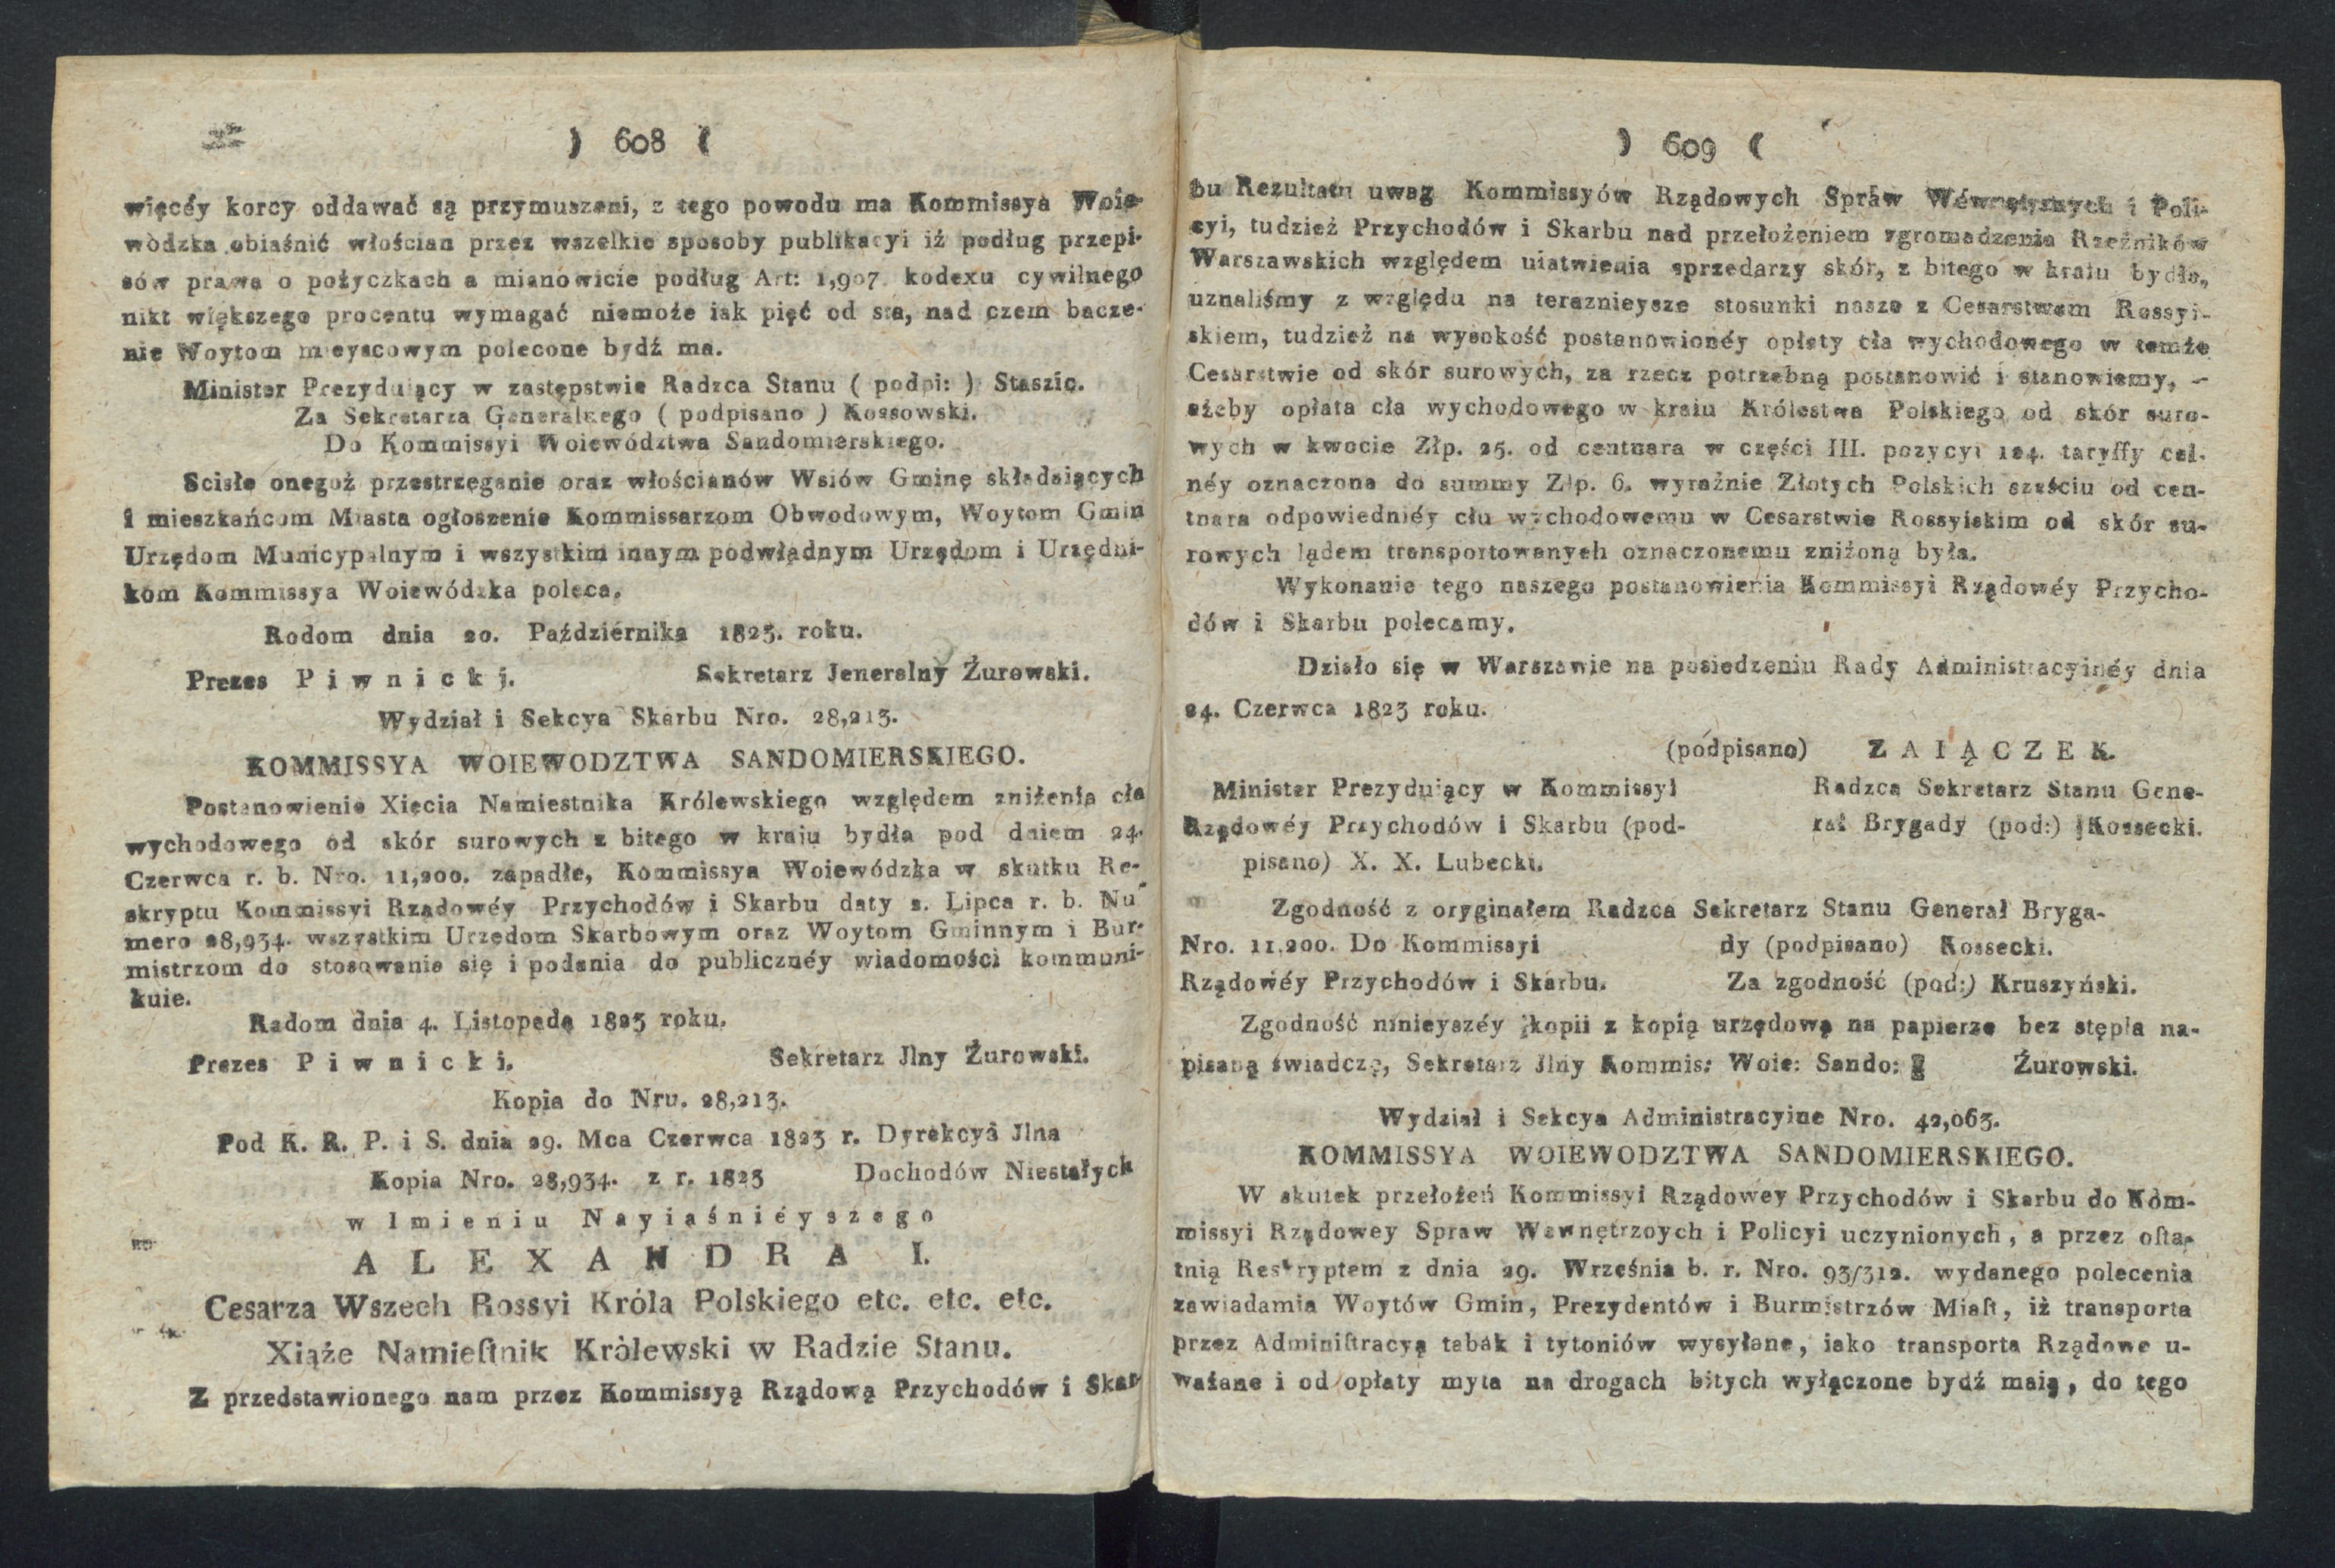 ) 608 (
więcéy korcy oddawać są przymuszeni, z tego powodu ma Kommissya Woie-
wódzka obiaśnić włościan przez wszelkie sposoby publikacyi iż podług przepi-
sów prawa o pożyczkach a mianowicie podług Art: 1,907 kodexu cywilnego
nikt większego procentu wymagać niemoże iak pięć od sta, nad czem bacze-
nie Woytom mieyscowym polecone bydź ma.
Minister Prezyduiący w zastępstwie Radzca Stanu ( podpi: ) Staszic.
Za Sekretarza Generalnego ( podpisano ) Kossowski.
Do Kommissyi Woiewództwa Sandomierskiego.
Scisłe onegoż przestrzeganie oraz włościanów Wsiów Gminę składaiących
i mieszkańcom Miasta ogłoszenie Kommissarzom Obwodowym, Woytom Gmin
Urzędom Municypalnym i wszystkim innym podwładnym Urzędom i Urzędni-
kom Kommissya Woiewódzka poleca.
Rodom dnia 20. Październiká 1823. roku.
Prezes Piwnicki. Sekretarz Jeneralny Żurowski.
Wydział i Sekcya Skarbu Nro. 28,213.
KOMMISSYA WOIEWODZTWA SANDOMIERSKIEGO.
Postanowienie Xięcia Namiestnika Królewskiego względem zniżenia cła
wychodowego od skór surowych z bitego w kraiu bydła pod dniem 24.
Czerwca r. b. Nro. 11,200. zapadłe, Kommissya Woiewódzka w skutku Re-
skryptu Kommissyi Rządowéy Przychodów i Skarbu daty 2. Lipca r. b. Nu-
mero 28,934. wszystkim Urzędom Skarbowym oraz Woytom Gminnym i Bur-
mistrzom do stosowania się i podania do publicznéy wiadomości kommuni-
kuie.
Radom dnia 4. Listopada 1823 roku.
Prezes Piwnicki. Sekretarz Jlny Żurowski.
Kopia do Nru. 28,213.
Pod K. R. P. i S. dnia 29. Mca Czerwca 1823 r. Dyrekcya Jlna
Kopia Nro. 28,934. z r. 1823 Dochodów Niestałych
w Imieniu Nayiaśniéyszego
ALEXANDRA I.
Cesarza Wszech Rossyi Króla Polskiego etc. etc. etc.
Xiąże Namieſtnik Królewski w Radzie Stanu.
Z przedstawionego nam przez Kommissyą Rządową Przychodów i Skar-
) 609 (
bu Rezultatu uwag Kommissyów Rządowych Spraw Wéwnętrznych i Poli-
cyi, tudzież Przychodów i Skarbu nad przełożeniem zgromadzenia Rzeźników
Warszawskich względem ułatwienia sprzedarzy skór, z bitego w kraiu bydła,
uznaliśmy z względu na teraznieysze stosunki nasze z Cesarstwem Rossyi-
skiem, tudzież na wysokość postanowionéy opłaty cła wychodowego w temże
Cesarstwie od skór surowych, za rzecz potrzebną postanowić i stanowiemy, —
ażeby opłata cła wychodowego w kraiu Królestwa Polskiego od skór suro-
wych w kwocie Złp. 25. od centnara w części III. pozycyi 124. taryffy cel-
néy oznaczona do summy Złp. 6. wyraźnie Złotych Polskich sześciu od cen-
tnara odpowiedniéy cłu wychodowemu w Cesarstwie Rossyiskim od skór su-
rowych lądem transportowanych oznaczonemu zniżoną była.
Wykonanie tego naszego postanowienia Kommissyi Rządowéy Przycho-
dów i Skarbu polecamy.
Działo się w Warszawie na posiedzeniu Rady Administracyinéy dnia
24. Czerwca 1823 roku.
(podpisano) ZAIĄCZEK.
Minister Prezyduiący w Kommissyi Radzca Sekretarz Stanu Gene-
Rządowéy Przychodów i Skarbu (pod- rał Brygady (pod:) Kossecki.
pisano) X. X. Lubecki.
Zgodność z oryginałem Radzca Sekretarz Stanu Generał Bryga-
Nro. 11,200. Do Kommissyi dy (podpisano) Kossecki.
Rządowéy Przychodów i Skarbu. Za zgodność (pod:) Kruszyński.
Zgodność ninieyszéy kopii z kopią urzędową na papierze bez stępla na-
pisaną świadczę, Sekretarz Jlny Kommis: Woie: Sando: Żurowski.
Wydział i Sekcya Administracyine Nro. 42,063.
KOMMISSYA WOIEWODZTWA SANDOMIERSKIEGO.
W skutek przełożeń Kommissyi Rządowey Przychodów i Skarbu do Kom-
missyi Rządowey Spraw Wewnętrzoych i Policyi uczynionych, a przez oſta-
tnią Reskryptem z dnia 29. Września b. r. Nro. 93/312. wydanego polecenia
zawiadamia Woytów Gmin, Prezydentów i Burmistrzów Miaſt, iż transporta
przez Adminiſtracyą tabak i tytoniów wysyłane, iako transporta Rządowe u-
ważane i od opłaty myta na drogach bitych wyłączone bydź maią, do tego